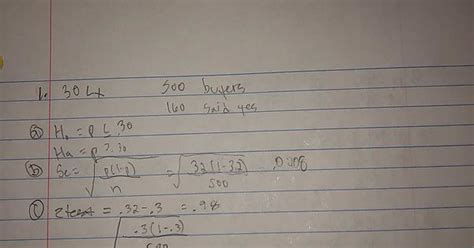 1. 30 Lx 500 buyers
160 said yes
(a) H₀ = p ≤ .30
Ha = p > .30
(b) Se = √(p(1-p)/n) = √(.32(1-.32)/500) .0208
(c) z test = .32-.3 = .98
√(.3(1-.3)/500)